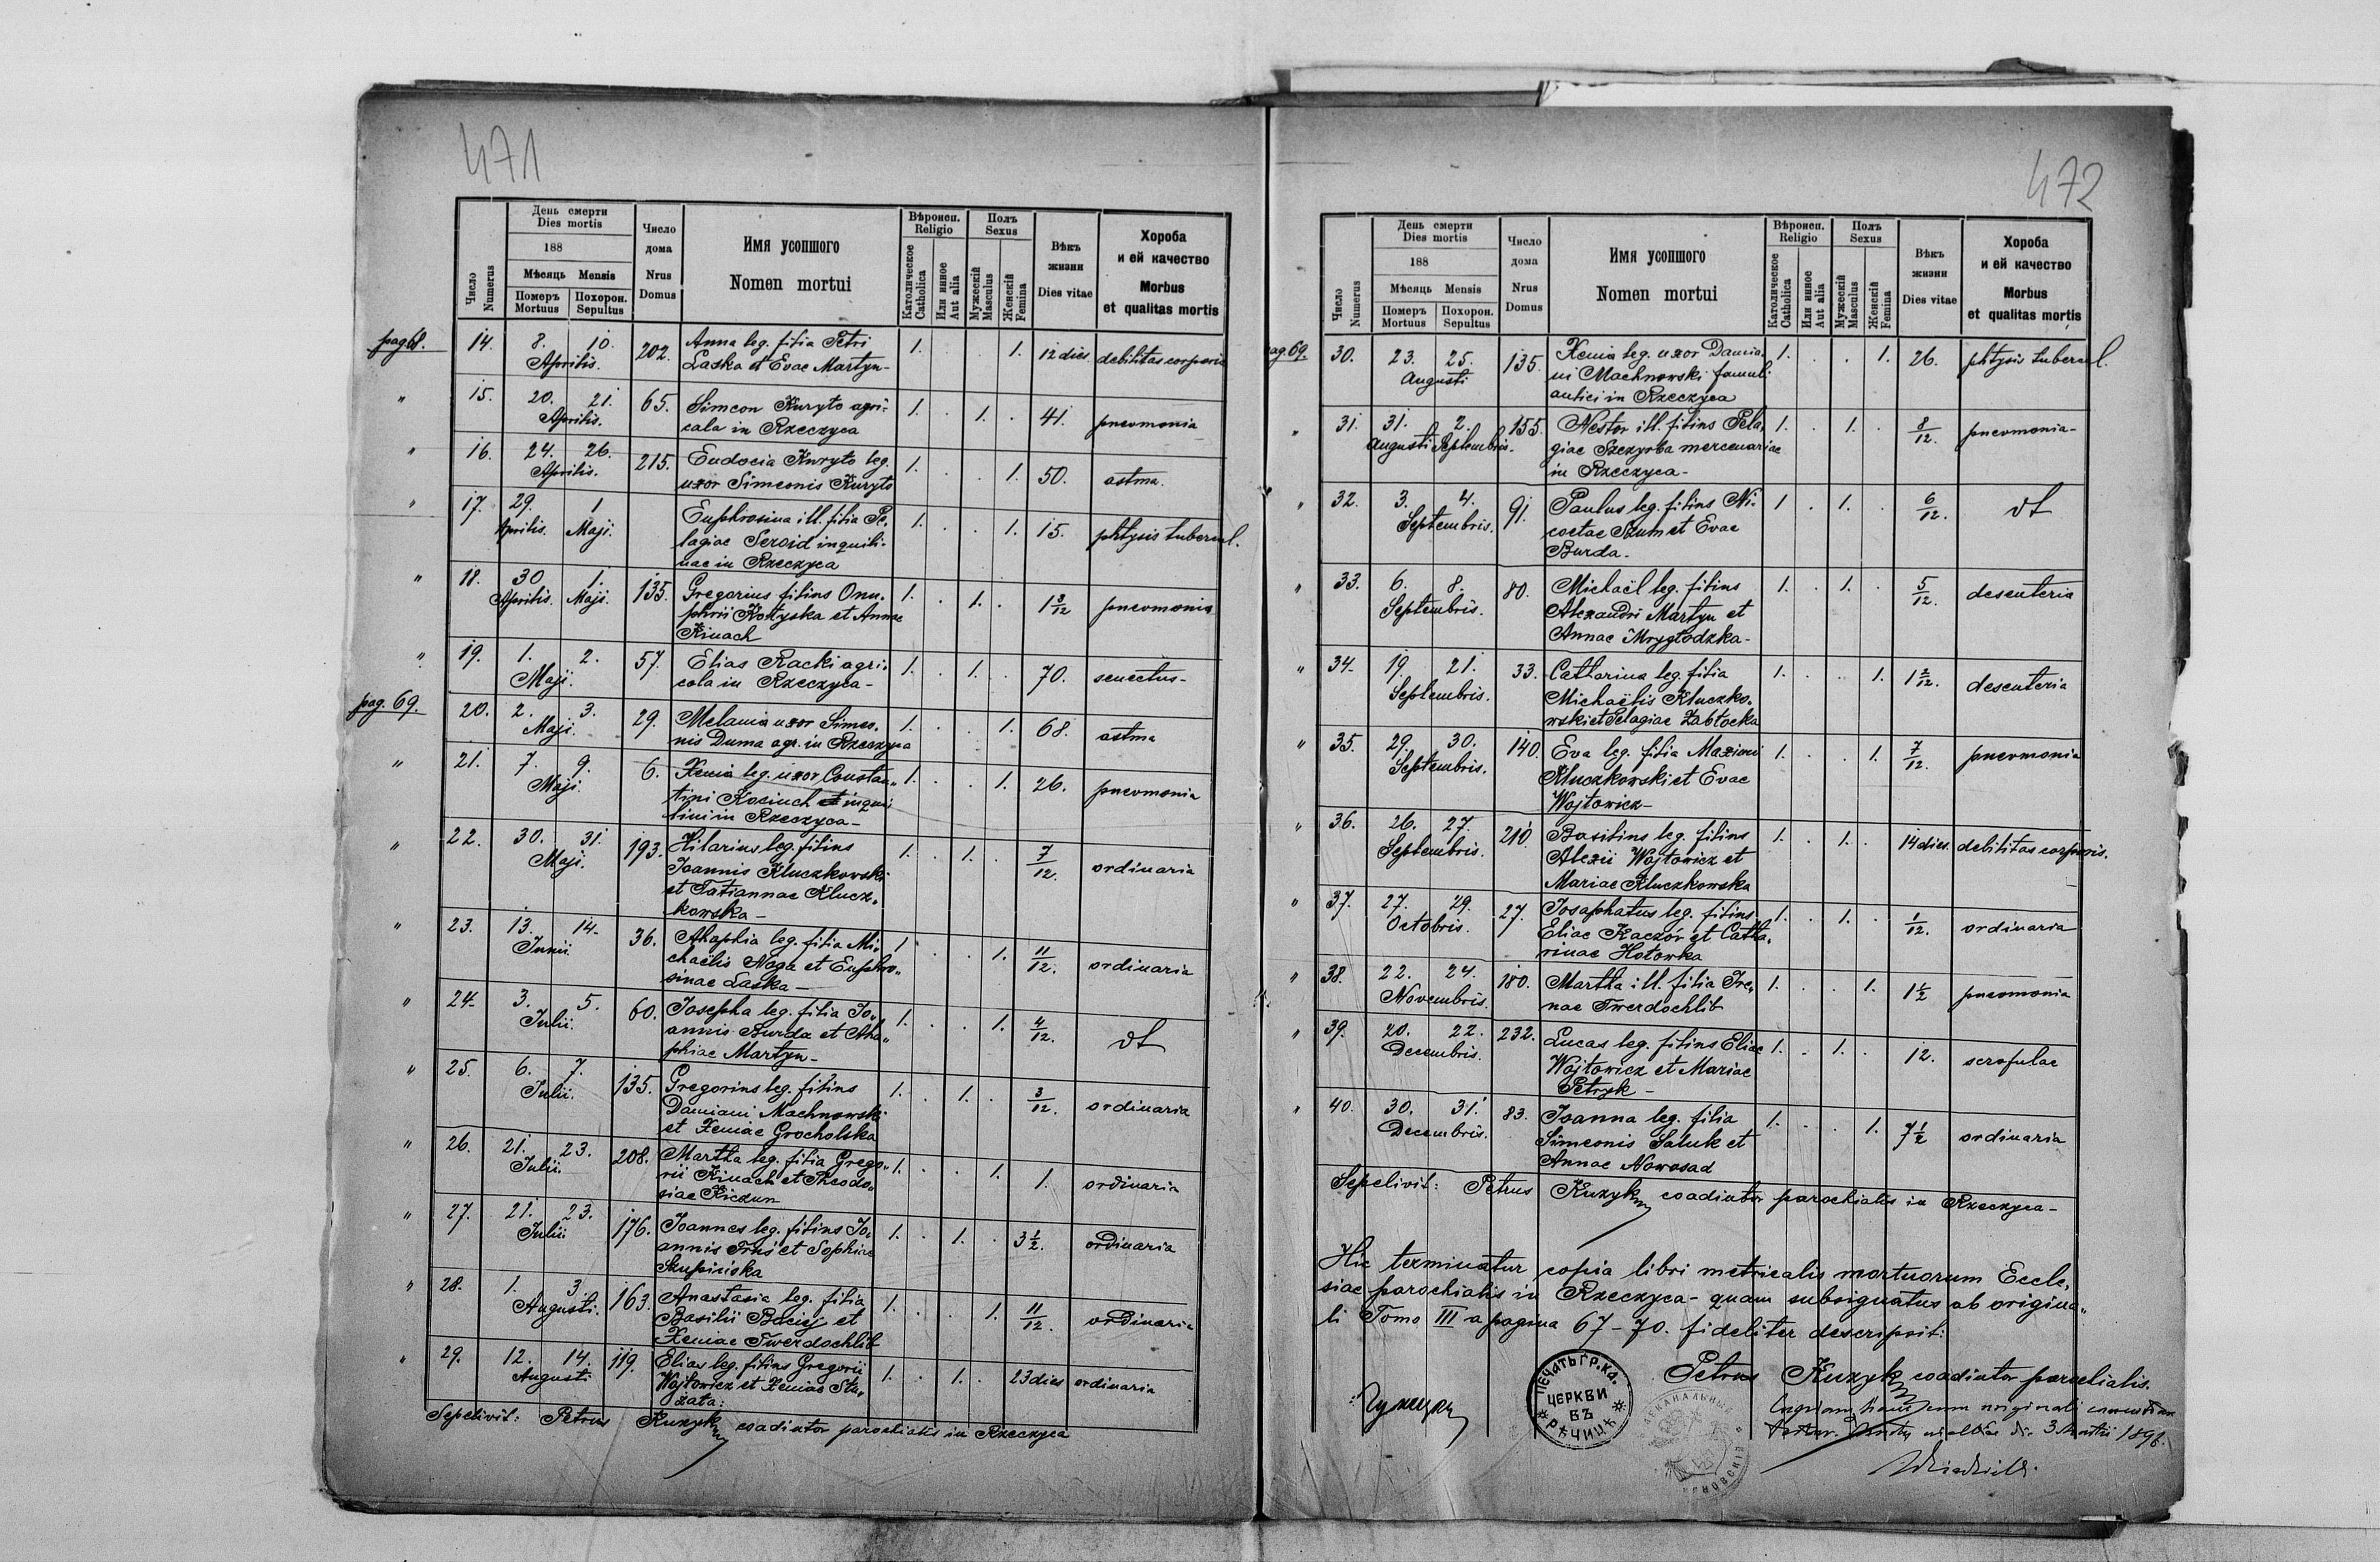 471
Число Numerus
День смерти Dies mortis
188
Мѣсяць Mensis
Померъ Mortuus
Похорон. Sepultus
Число дома Nrus Domus
Имя усопшого Nomen mortui
Вѣроисп. Religio
Католическое Catholica
Или инное Aut alia
Полъ Sexus
Мужескій Masculus
Женскій Femina
Вѣкъ жизни Dies vitae
Хороба и ей качество
Morbus et qualitas mortis
pag 68. 14. 8. 10. Aprilis. 202. Anna leg. filia Petri 1. 1. 12 dies. debilitas corporis
Laska et Evae Martyn-
" 15. 20. 21. Aprilis. 65. Simeon Kuryto agri- 1. . 1. . 41. pneumonia
cola in Rzeczyca
" 16. 24. 26. Aprilis. 215. Eudocia Kuryto leg. 1. . 1. 50. astma.
uxor Simeonis Kuryto
" 17. 29. Aprilis. 1 Maji. Euphrosina ill. filia Pe- 1. . . 1. 15. phtysis tubercul.
lagiae Seroid inquili-
nae in Rzeczyca
" 18. 30 Aprilis. 1. Maji. 135. Gregorius filius Onu- 1. . 1. . 1 3/12 pneumonia
phrii Kotyska et Annae
Kinach
" 19. 1. 2. Maji. 57. Elias Racki agri- 1. . 1. . 70. senectus-
cola in Rzeczyca-
pag. 69. 20. 2. 3. Maji. 29. Melania uxor Simeo- 1. . . 1. 68. astma
nis Duma agr. in Rzeczyca
" 21. 7. 9. Maji. 6. Xenia leg. uxor Constan- 1. . . 1. 26. pneumonia
tini Kociuch inqui-
lini in Rzeczyca-
" 22. 30. 31. Maji. 193. Hilarius leg. filius 1. . 1. . 7/12. ordinaria
Joannis Kluczkowski
et Tatiannae Klucz-
kowska-
" 23. 13. 14. Junii. 36. Ahaphia leg. filia Mi- 1 . . 1. 11/12. ordinaria
chaëlis Noga et Euphro-
sinae Laska-
" 24. 3. 5. Julii. 60. Josepha leg. filia Jo- 1. . . 1. 4/12. dt
annis Burda et Aha-
phiae Martyn-
" 25. 6. 7. Julii. 135. Gregorius leg. filius 1. . 1. . 3/12. ordinaria
Damiani Machnowski
et Xeniae Grocholska
" 26. 21. 23. Julii. 208. Martha leg. filia Grego- 1. . . 1. 1. ordinaria
rii Kinach et Theodo-
siae Kiczun
" 27. 21. 23. Julii 176. Joannes leg. filius Jo- 1. . 1. . 3 1/2. ordinaria
annis Truś et Sophiae
Skupińska
" 28. 1. 3. Augusti. 163. Anastasia leg. filia 1. . . 1. 11/12. ordinaria
Basilii Baciej et
Xeniae Twerdochlib
" 29. 12. 14. Augusti 119. Elias leg. filius Gregorii 1. . 1. . 23 dies ordinaria
Wojtowicz et Xeniae Sta-
Sepelivit: Petrus Kuzyk coadiutor parochialis in Rzeczyca
472
Число Numerus
День смерти Dies mortis
188
Мѣсяць Mensis
Померъ Mortuus
Похорон. Sepultus
Число дома Nrus Domus
Имя усопшого Nomen mortui
Вѣроисп. Religio
Католическое Catholica
Или инное Aut alia
Полъ Sexus
Мужескій Masculus
Женскій Femina
Вѣкъ жизни Dies vitae
Хороба и ей качество
Morbus et qualitas mortis
pag. 69. 30. 23. 25. Augusti 135. Xenia leg. uxor Damia- 1. . . 1. 26. phtysis tubercul.
ni Machnowski famuli
aulici in Rzeczyca
" 31. 31. Augusti 2. Septembris. 155. Nestor ill. filius Pela- 1. . 1. . 8/12. pneumonia-
giae Szczyrba mercenariae
in Rzeczyca-
" 32. 3. 4. Septembris. 91. Paulus leg. filius Ni- 1 . 1. . 6/12. dt
coetae Szum et Evae
Burda-
" 33. 6. 8. Septembris. 80. Michaël leg. filius 1. . 1. . 5/12. desenteria
Alexandri Martyn et
Annae Mrygłodzka-
" 34. 19. 21. Septembris. 33. Catharina leg. filia 1. . . 1. 1 2/12. desenteria
Michaëlis Kluczko-
wski et Pelagiae Zabłocka
" 35. 29. 30. Septembris. 140. Eva leg. filia Maximi 1. . . 1. 7/12. pneumonia
Kluczkowski et Evae
Wojtowicz-
" 36. 26. 27. Septembris. 210. Basilius leg. filius 1. . 1. . 14 dies. debilitas corporis.
Alexii Wojtowicz et
Mariae Kluczkowska
" 37. 27. 29. Octobris. 27. Josaphatus leg. filius 1. . 1. . 1/12. ordinaria
Eliae Kaczór et Catha-
rinae Hotowka
" 38. 22. 24. Novembris. 180. Martha ill. filia Ire- 1. . . 1. 1 1/2 pneumonia
nae Twerdochlib
" 39. 20. 22. Decembris. 232. Lucas leg. filius Eliae 1. . 1. . 12. scrofulae
Wojtowicz et Mariae
Petryk-
" 40. 30. 31. Decembris. 83. Joanna leg. filia 1. . . 1. 7 1/2 ordinaria
Simeonis Saluk et
Annae Nowosad
Sepelivit: Petrus Kuzyk coadiutor parochialis in Rzeczyca-
Hic terminatur copia libri metricalis mortuorum Eccle-
siae parochialis in Rzeczyca- quam subsignatus ab origina-
li Tomo III a pagina 67-70. fideliter descripsit:
Petrus Kuzyk coadiutor parochialis.
ПЕЧАТЬ ГР.КА. ЦЕРКВИ ВЪ РѢЧИЦѢ